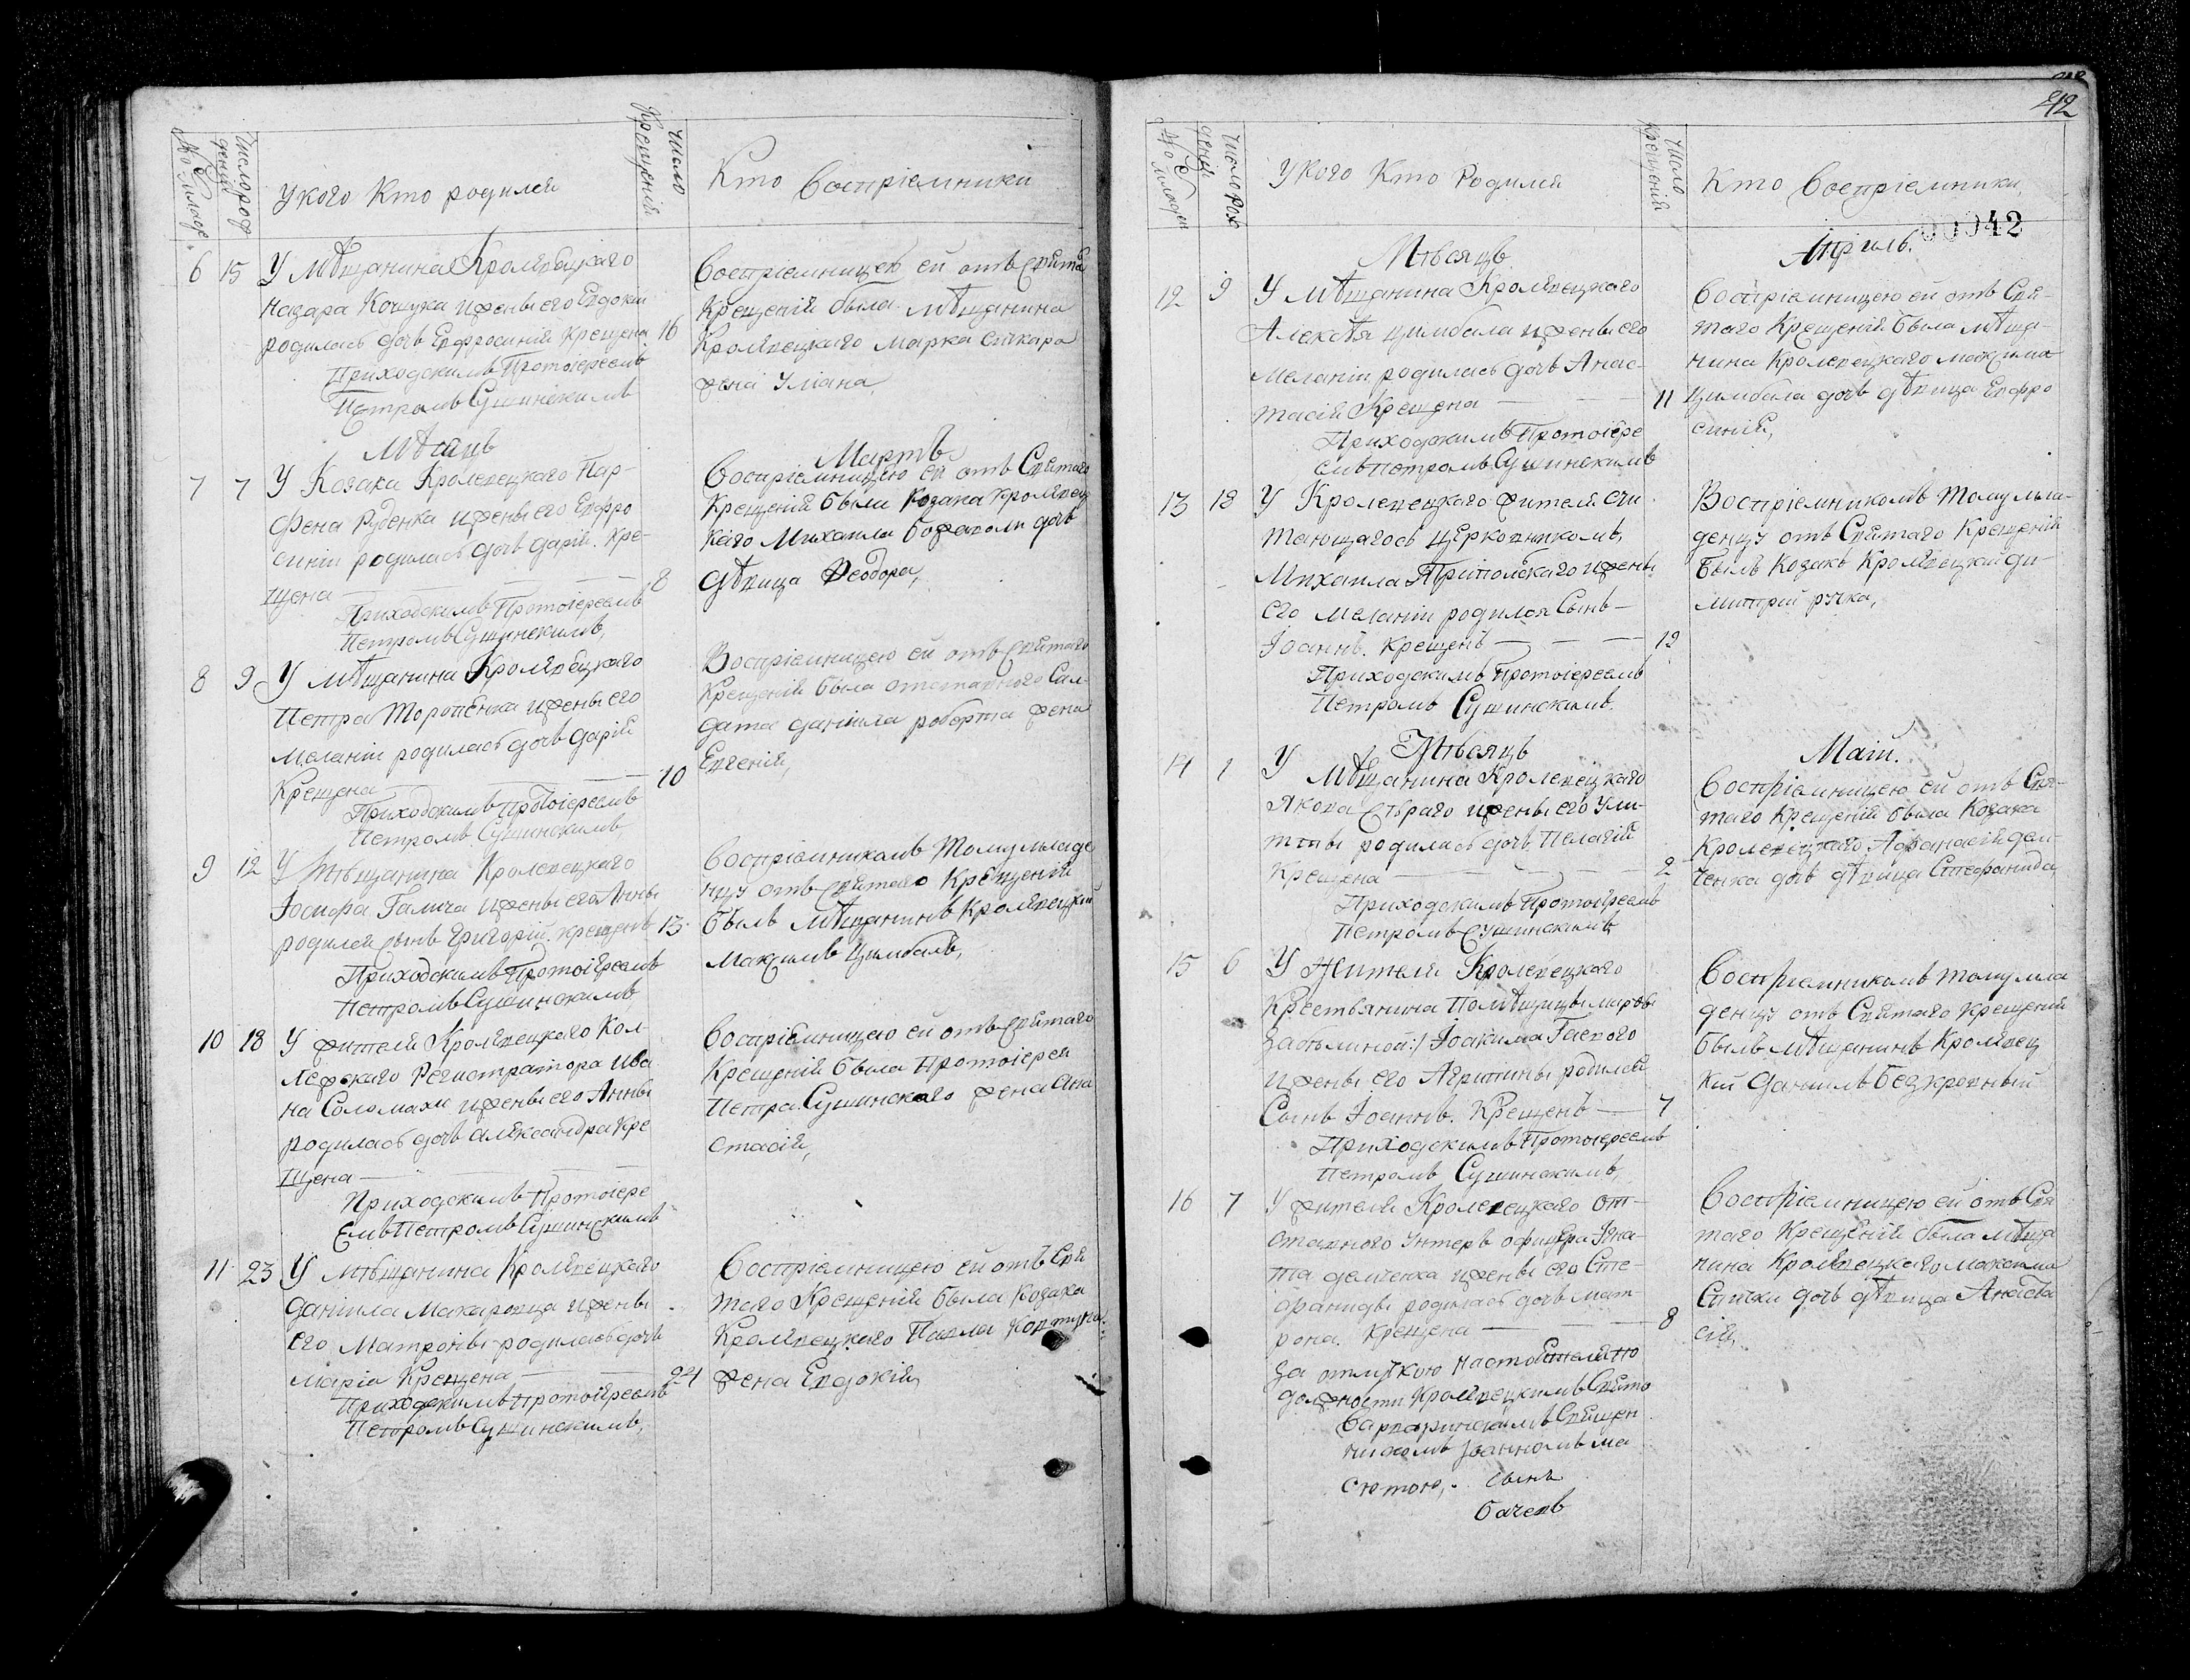 № Младе.
Число рожденій
У кого кто родился
Число Крещеній
Кто Воспріемники
6 15 У Мѣщанина Кролевецкаго
Назара Кощука и жены его Евдокіи
родилась дочь Евфросинія Крещена 16
Приходскимъ Протоіереемъ
Петромъ Сушинскимъ
Воспріемницею ей отъ Святаго
Крещенія была Мѣщанина
Кролевецкаго Марка
жена Уліана,
Мѣсяцъ Мартъ
7 7 У Козака Кролевецкаго Пар-
фена Руденка и жены его Евфро
синіи родилась дочь Дарія. Кре-
щена 8
Приходскимъ Протоіереемъ
Петромъ Сушинскимъ,
Воспріемницею ей отъ Святаго
Крещенія были Козака Кролевец
каго Михаила дочь
дѣвица Ѳеодора,
8 9 У Мѣщанина Кролевецкаго
Петра Торопѣнка и жены его
Меланіи родилась дочь Дарія
Крещена 10
Приходскимъ Протоіереемъ
Петромъ Сушинскимъ,
Воспріемницею ей отъ Святаго
Крещенія была отставного Сал-
дата Даніила жена
Евгенія,
9 12 У Мѣщанина Кролевецкаго
Іосифа Галича и жены его Анны
родился сынъ Григорій. крещенъ 13
Приходскимъ Протоіереемъ
Петромъ Сушинскимъ
Воспріемникомъ тому младе
нцу отъ Святаго Крещенія
былъ Мѣщанинъ Кролевецкій
Максимъ Цимбалъ,
10 18 У жителя Кролевецкаго Кол-
лежскаго Регистратора Ива
на Соломахи и жены его Анны
родилась дочь Александра Кре
щена
Приходскимъ Протоіере
емъ Петромъ Сушинскимъ
Воспріемницею ей отъ Святаго
Крещенія была Протоіерея
Петра Сушинскаго жена Ана
стасія,
11 23 У Мѣщанина Кролевецкаго
Даніила Макаровца и жены
его Матроны родилась дочь
Марія Крещена 24
Приходскимъ Протоіереемъ
Петромъ Сушинскимъ,
Воспріемницею ей отъ Свя
таго Крещенія была Козака
Кролевецкаго Павла
жена Евдокія
42
№ Младен
Число Рожденій
У кого кто Родился
Число крещеній
Кто Воспріемники
00042
Мѣсяцъ Апрѣль.
12 9 У Мѣщанина Кролевецкаго
Алексѣя Цимбала и жены его
Меланіи родилась дочь Анас-
тасія Крещена 11
Приходскимъ Протоіере
емъ Петромъ Сушинскимъ
Воспріемницею ей отъ Свя-
таго Крещенія была Мѣща-
нина Кролевецкаго Максима
Цимбала дочь дѣвица Евфро
синія,
13 18 У Кролевецкаго жителя счи
тающагось Церковникомъ,
Михаила Трипольскаго и жены
его Меланіи родился Сынъ
Іоаннъ. Крещенъ 19
Приходскимъ Протоіереемъ
Петромъ Сушинскимъ.
Воспріемникомъ тому мла-
денцу отъ Святаго Крещенія
былъ Козакъ Кролевецкій Ди-
митрій ручка,
Мѣсяцъ Маій.
14 1 У Мѣщанина Кролевецкаго
Якова Сѣраго и жены его Ули-
тты родилась дочь Пелагія
Крещена 2
Приходскимъ Протоіереемъ
Петромъ Сушинскимъ
Воспріемницею ей отъ Свя-
таго Крещенія была Козака
Кролевецкаго Афанасія Дем
ченка дочь дѣвица Стефанида,
15 6 У Жителя Кролевецкаго
Крестьянина Помѣщицы
Іоакима Гаевого
и жены его Агрипины родился
Сынъ Іоаннъ. Крещенъ 7
Приходскимъ Протоіереемъ
Петромъ Сушинскимъ,
Воспріемникомъ тому мла
денцу отъ Святаго Крещенія
былъ Мѣщанинъ Кролевец
кій Даніилъ Безкровный
16 7 У жителя Кролевецкаго от-
ставного Унтеръ офицера Игна-
та Демченка и жены его Сте-
фаниды родилась дочь Мат
рона. Крещена 8
За отлучкою Настоятеля по
должности Кролевецкимъ Свято
Варваринскимъ Священ
никомъ Іоанномъ Ма
Воспріемницею ей отъ Свя
таго Крещенія была Мѣща
нина Кролевецкаго Максима
Спички дочь дѣвица Анаста
сія,